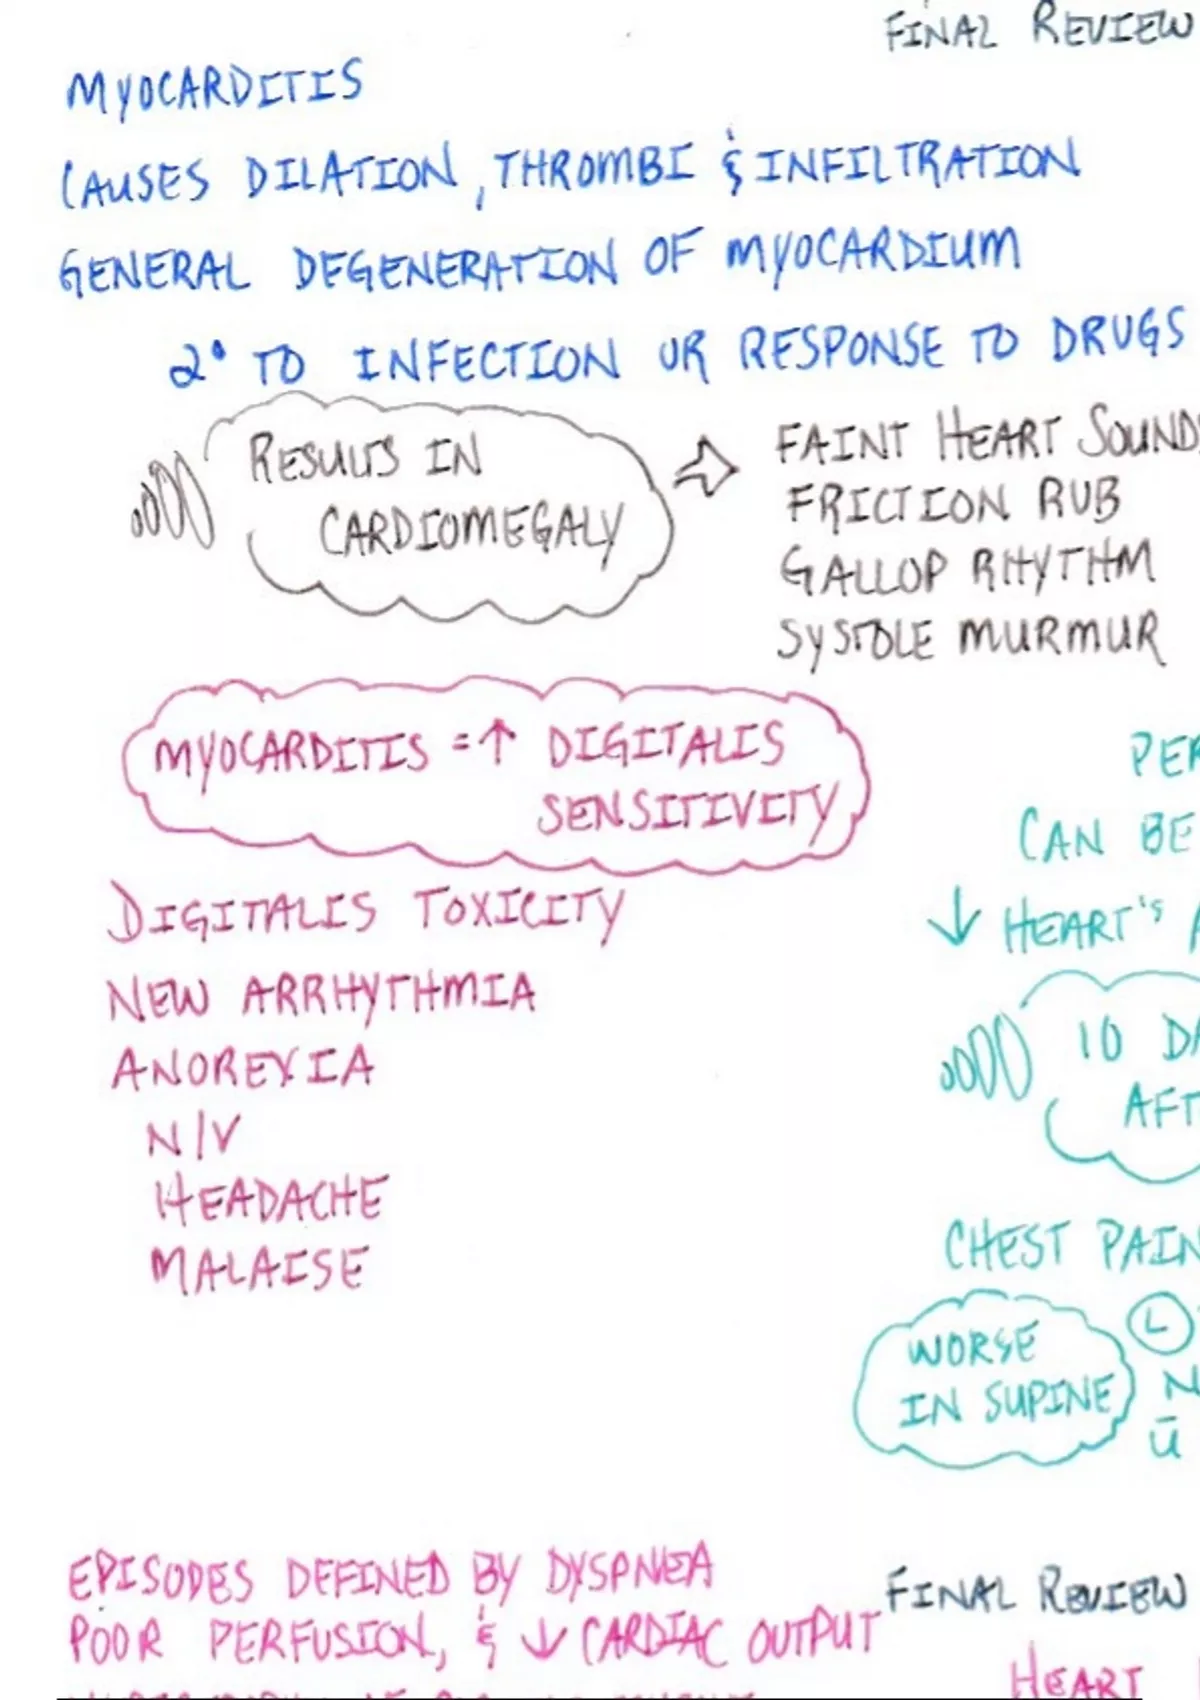 FINAL REVIEW
MYOCARDITIS
CAUSES DILATION, THROMBI & INFILTRATION
GENERAL DEGENERATION OF MYOCARDIUM
2° TO INFECTION OR RESPONSE TO DRUGS
RESULTS IN
CARDIOMEGALY
FAINT HEART SOUNDS
FRICTION RUB
GALLOP RHYTHM
SYSTOLE MURMUR
MYOCARDITIS = ↑ DIGITALIS
SENSITIVITY
DIGITALIS TOXICITY
NEW ARRHYTHMIA
ANOREXIA
N/V
HEADACHE
MALAISE
PER
CAN BE
↓ HEART'S
10 DA
AFT
CHEST PAIN
WORSE
IN SUPINE
L
N
ū
EPISODES DEFINED BY DYSPNEA
POOR PERFUSION, & ↓ CARDIAC OUTPUT
FINAL REVIEW
HEART